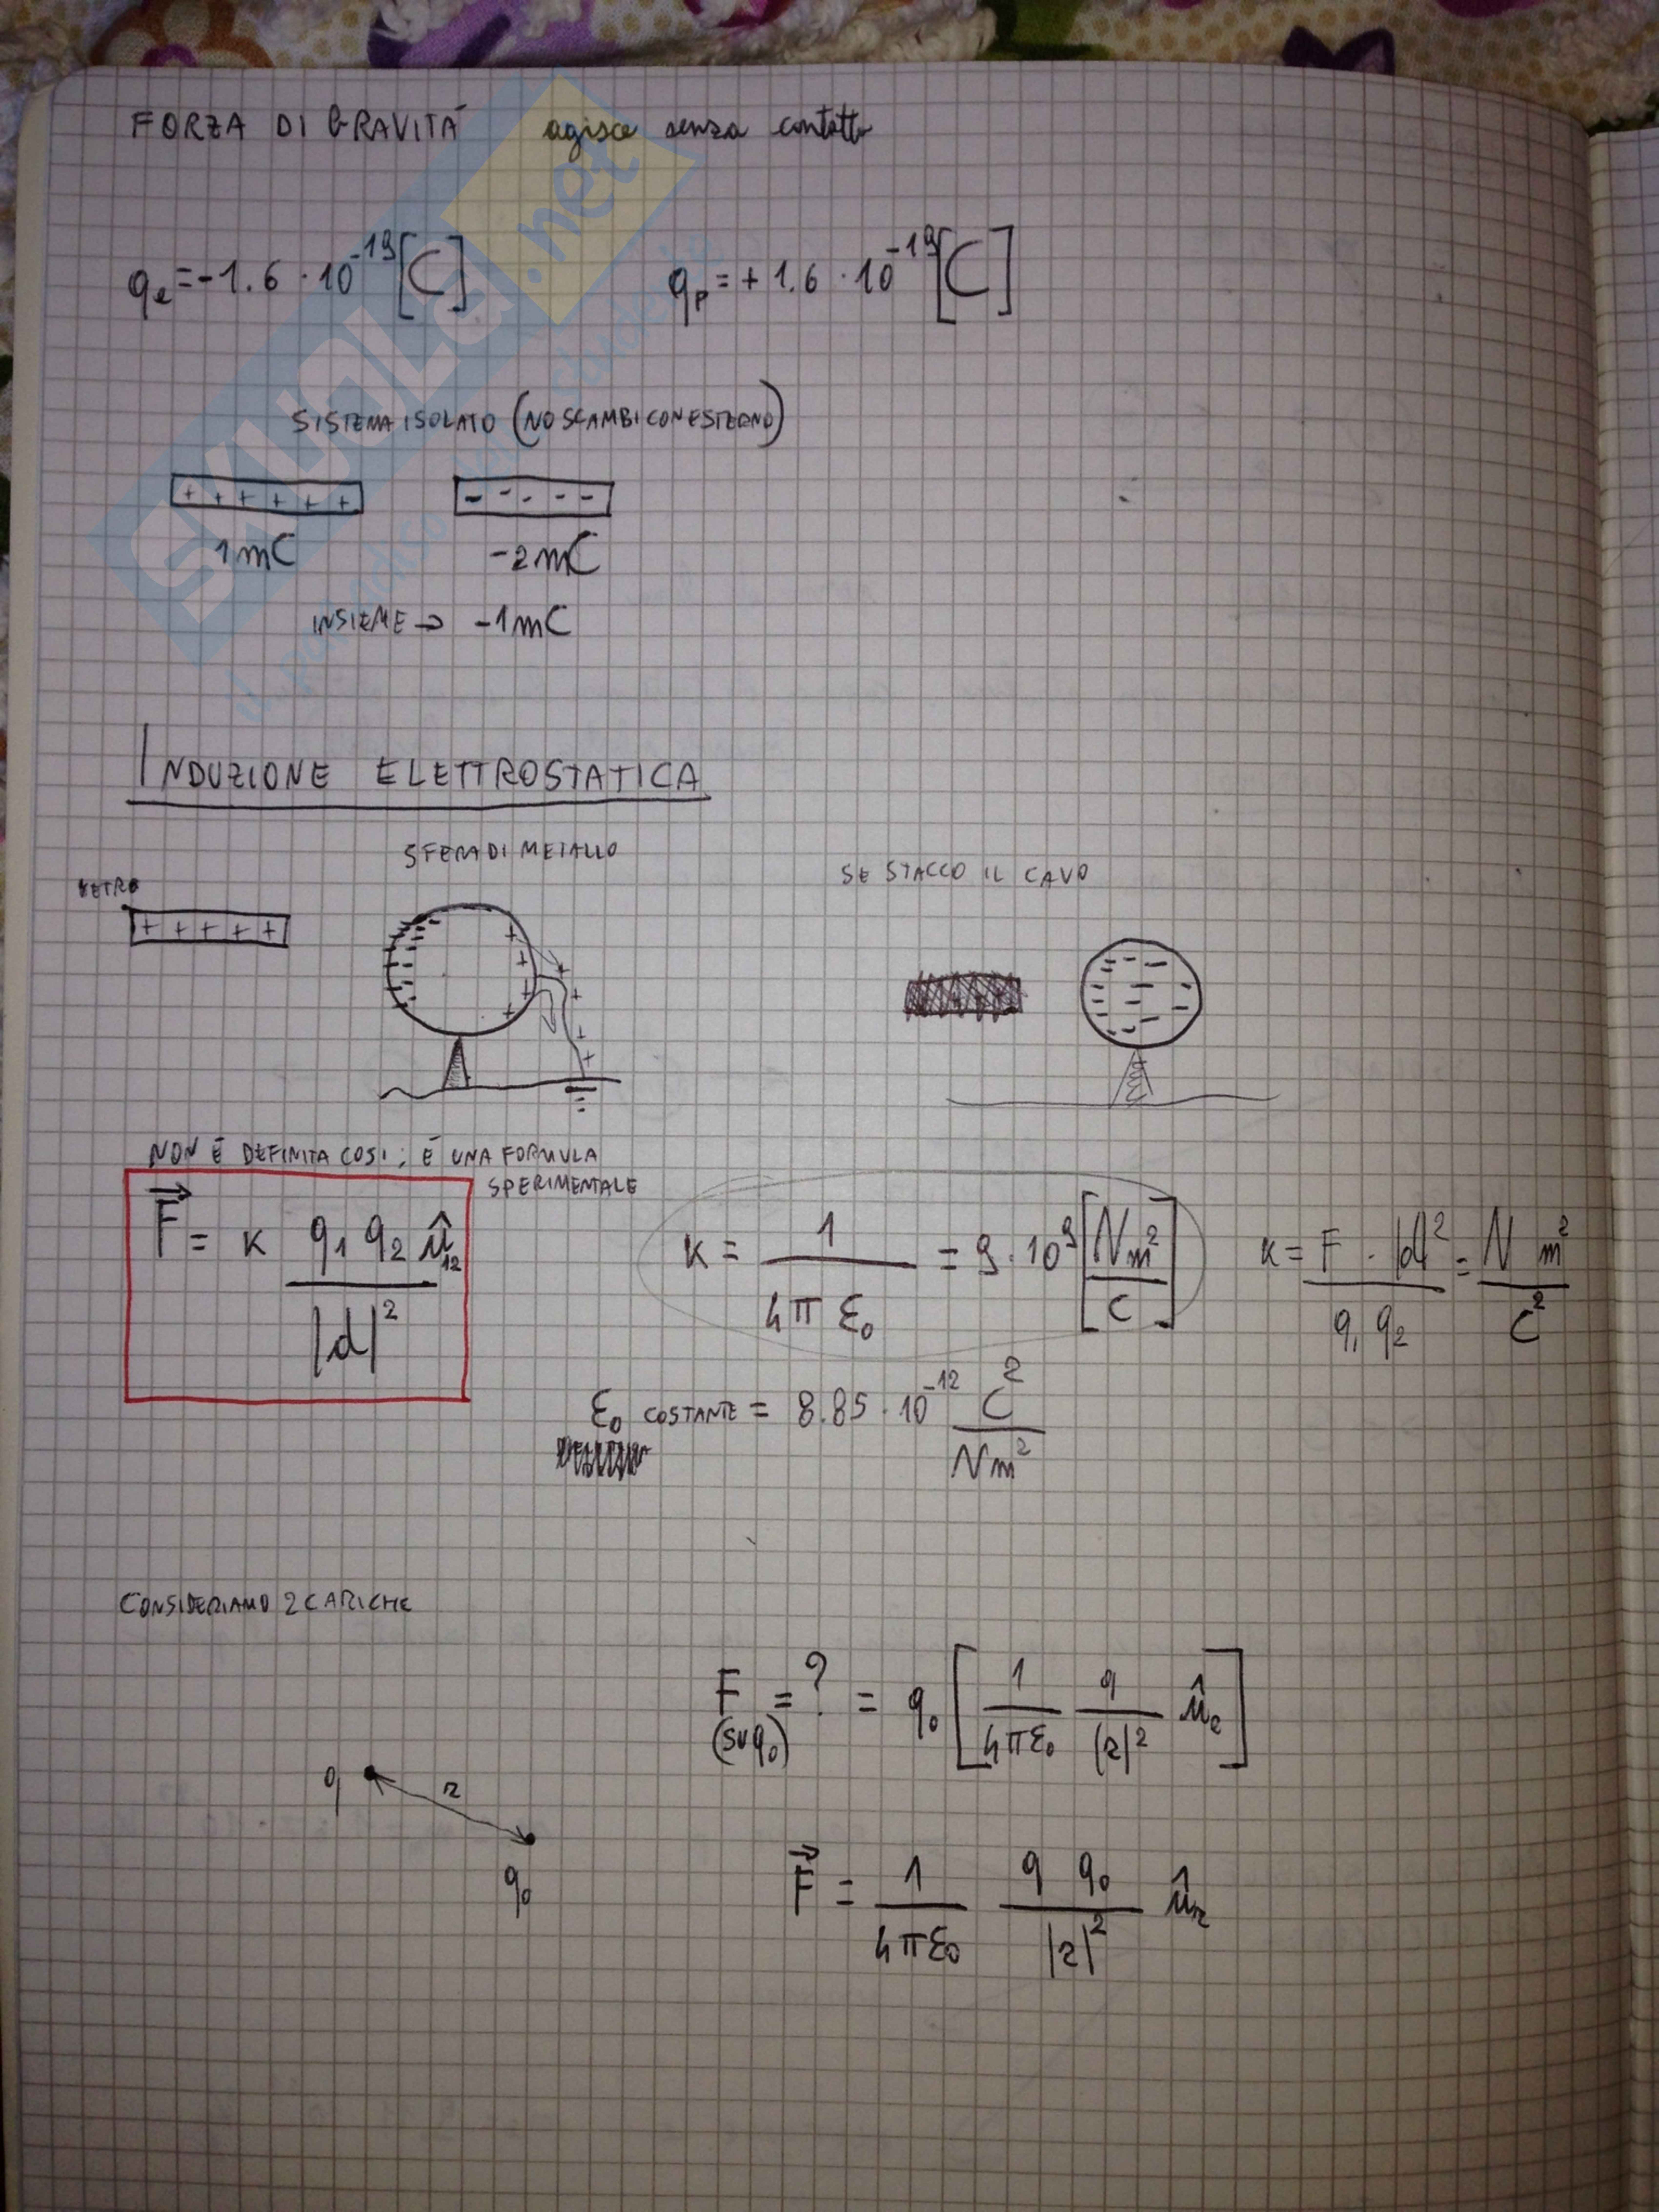 FORZA DI GRAVITÀ agisce senza contatto
qe = -1.6 · 10^-19 [C] qp = + 1.6 · 10^-19 [C]
SISTEMA ISOLATO (NO SCAMBI CON ESTERNO)
+ + + + + + - - - - -
1mC -2mC
INSIEME → -1mC
INDUZIONE ELETTROSTATICA
SFERA DI METALLO
SE STACCO IL CAVO
VETRO
+ + + + +
NON È DEFINITA COSI; È UNA FORMULA
SPERIMENTALE
F⃗ = K q1 q2 û12 / |d|^2
K = 1 / 4π ε0 = 9 · 10^9 [Nm^2 / C]
K = F · |d|^2 / q1 q2 = N m^2 / C^2
ε0 COSTANTE = 8.85 · 10^-12 C^2 / Nm^2
CONSIDERIAMO 2 CARICHE
F (SU q0) = ? = q0 [1 / 4πε0 q / |r|^2 ûr]
q r
q0
F⃗ = 1 / 4πε0 q q0 / |r|^2 ûr
SKUOLA.net
il paradiso dello studente